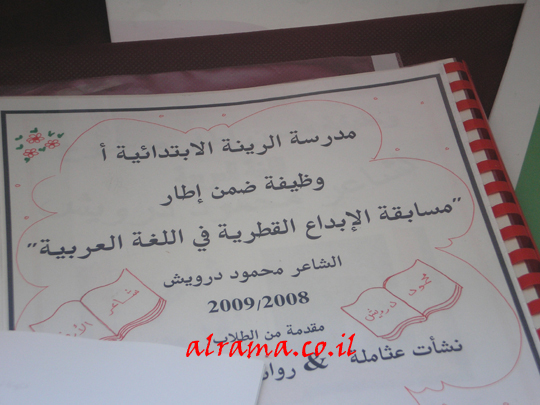 مدرسة الرينة الابتدائية أ
وظيفة ضمن إطار
"مسابقة الإبداع القطرية في اللغة العربية"
الشاعر محمود درويش
2009/2008
شاعر
محمود
درويش
مقدمة من الطلاب
alrama.co.il
نشأت عثاملة &